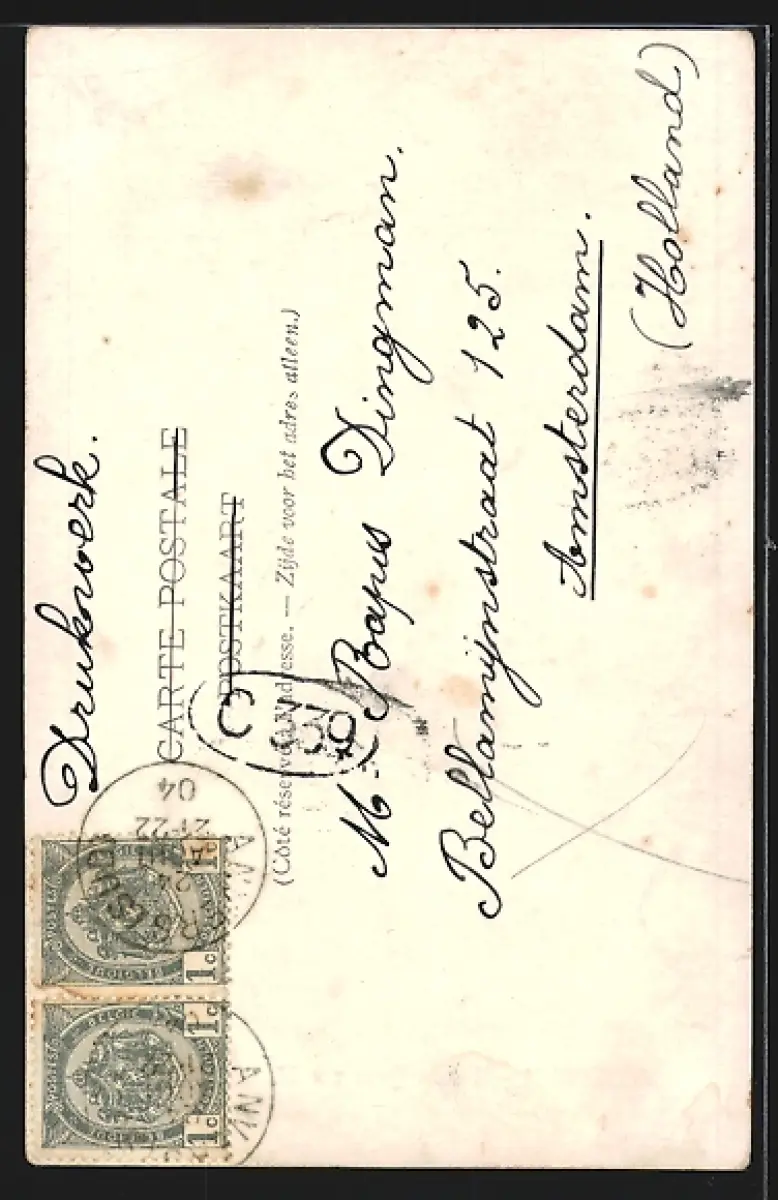 Drukwerk.
CARTE POSTALE
POSTKAART
(Côté réservé à l'adresse. — Zijde voor het adres alleen.)
M. Bapus Dingman.
Bellamijnstraat 125.
Amsterdam.
(Holland)
POSTES
BELGIË
1c 1c
POSTES
BELGIË
1c 1c
21-22
04